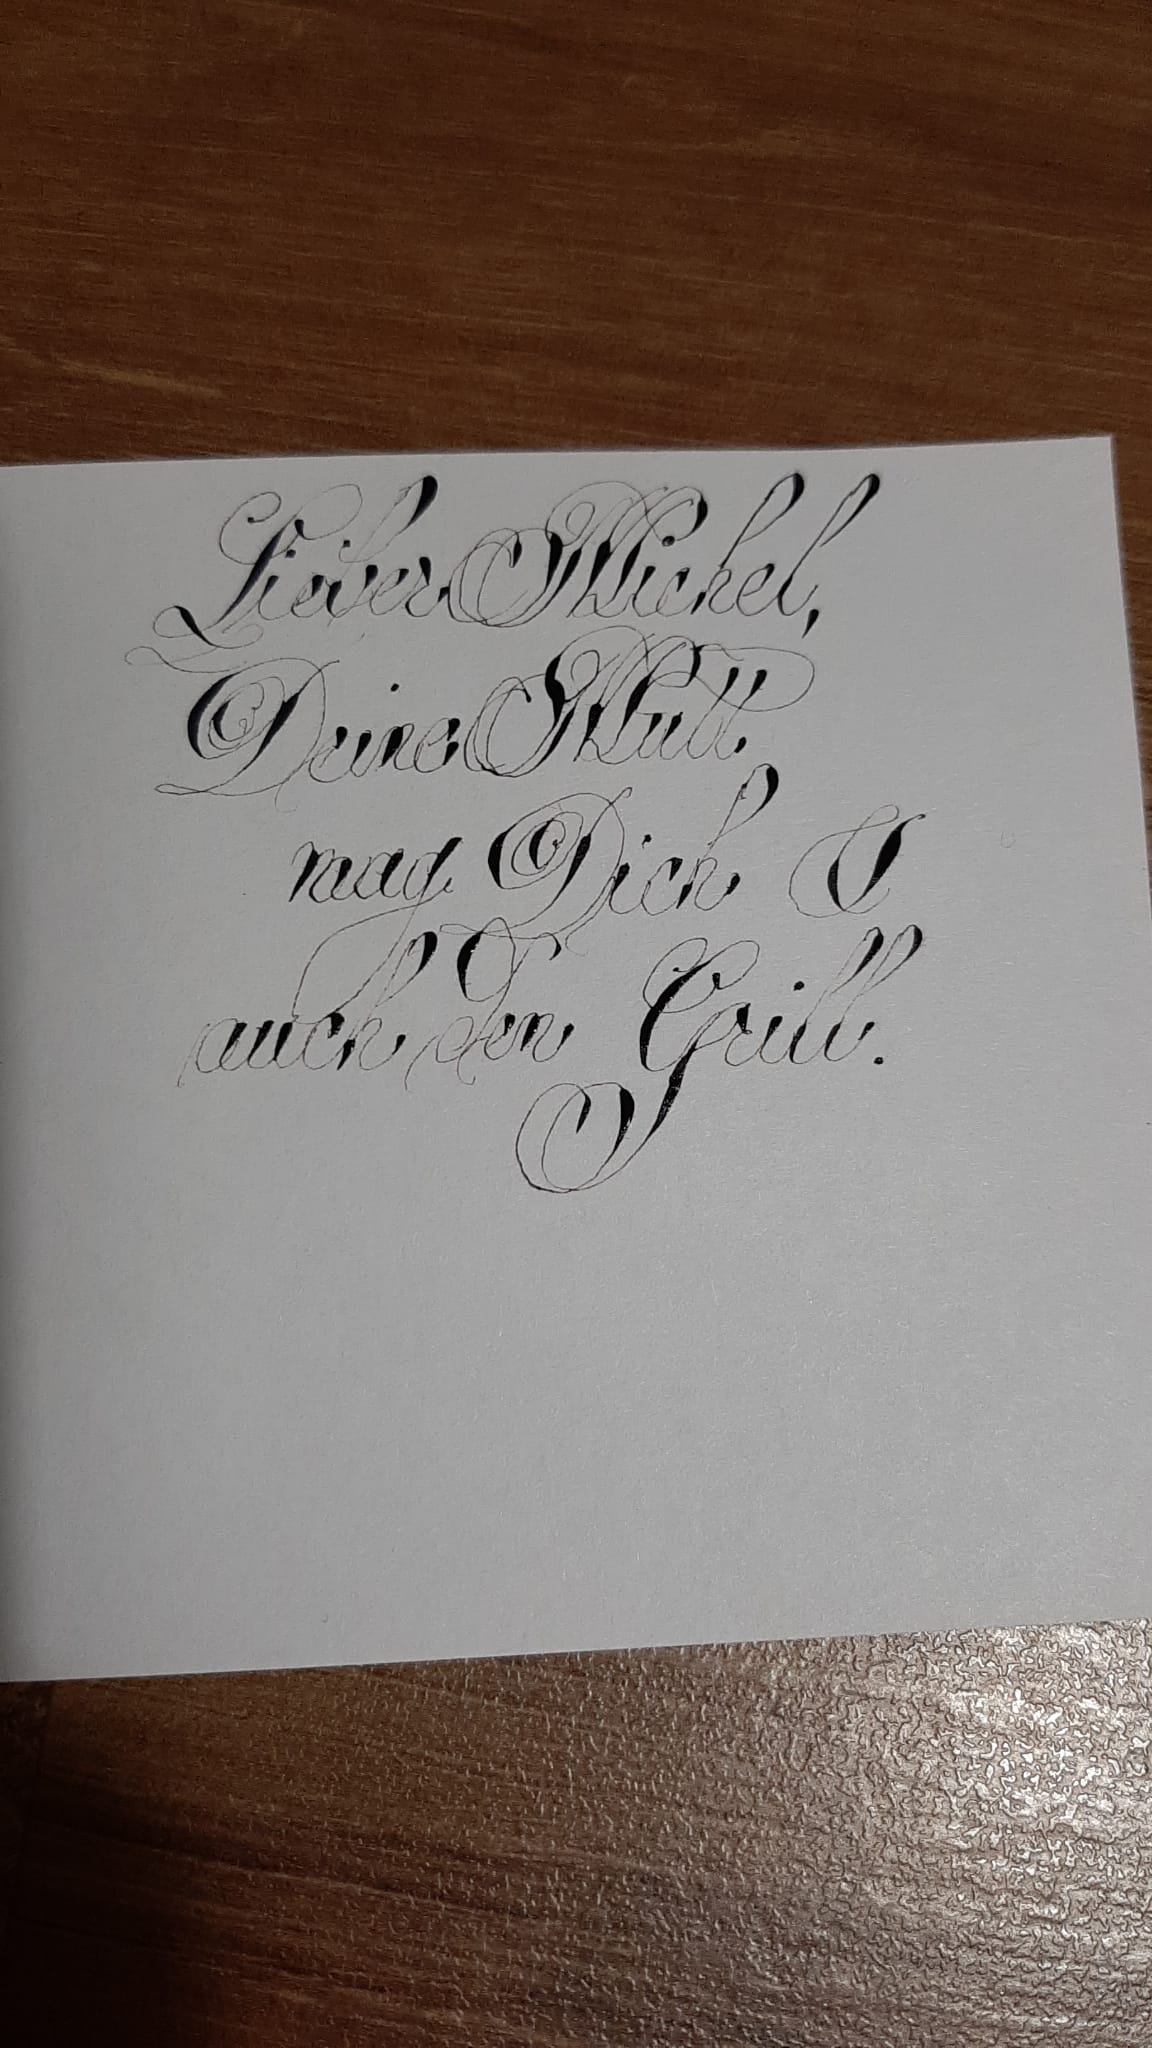 Lieber Michel,
Deine Mutt.
mag Dich &
auch den Grill.